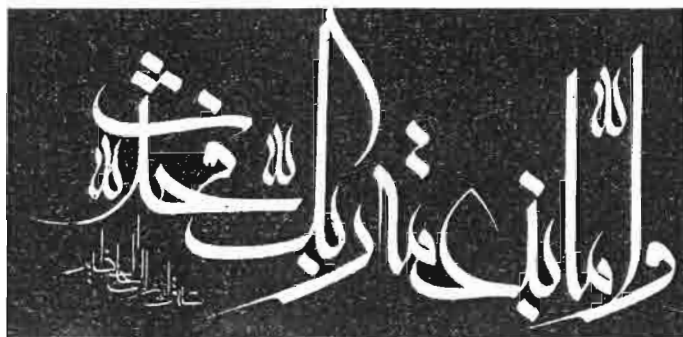 وأما بنعمة ربك فحدث